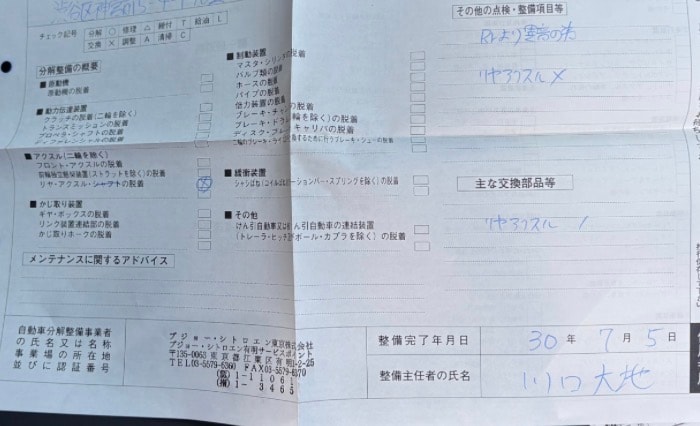 チェック記号 分解 ○ 修理 △ 締付 T 給油 L
交換 × 調整 A 清掃 C
分解整備の概要
■原動機
原動機の脱着
■動力伝達装置
クラッチの脱着(二輪を除く)
トランスミッションの脱着
プロペラ・シャフトの脱着
ディファレンシャルの脱着
■アクスル(二輪を除く)
フロント・アクスルの脱着
前輪独立懸架装置(ストラットを除く)の脱着
リヤ・アクスル・シャフトの脱着
■かじ取り装置
ギヤ・ボックスの脱着
リンク装置連結部の脱着
かじ取りホークの脱着
■制動装置
マスタ・シリンダの脱着
バルブ類の脱着
ホースの脱着
パイプの脱着
倍力装置の脱着
ブレーキ・チャ
ブレーキ・ドラ 輪を除く)の脱着
ディスク・ブレー キャリパの脱着
するために行うブレーキ・シューの脱着
■緩衝装置
シャシばね(コイルばね ションバー・スプリングを除く)の脱着
■その他
けん引自動車又はけん引自動車の連結装置
(トレーラ・ヒッチ ボール・カプラを除く)の脱着
メンテナンスに関するアドバイス
その他の点検・整備項目等
Rrより異音の為
リヤアクスル ×
主な交換部品等
リヤアクスル 1
自動車分解整備事業者
の氏名又は名称
事業場の所在地
並びに認証番号
プジョー・シトロエン東京株式会社
プジョー・シトロエン有明サービスポイント
〒135-0063 東京都江東区有明1-2-25
TEL.03-5579-6360 FAX03-5579-6370
1-11061
1-3465
整備完了年月日 30 年 7 月 5 日
整備主任者の氏名 川口 大地